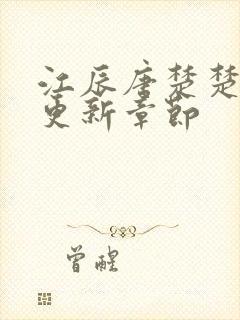 江辰唐楚楚
更新章节
曾醒